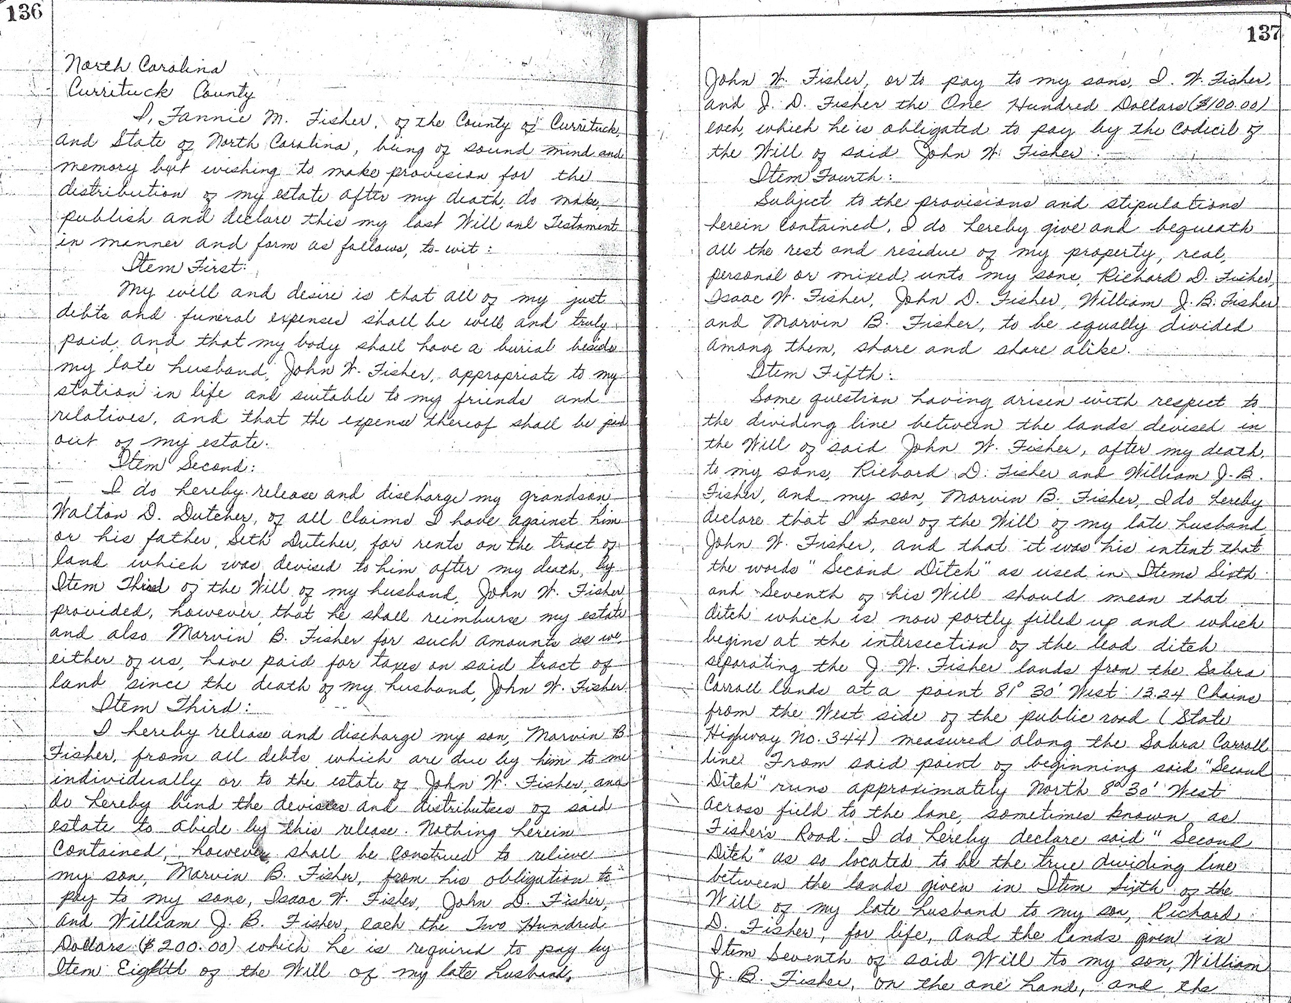 136
North Carolina
Currituck County
I, Fannie M. Fisher, of the County of Currituck,
and State of North Carolina, being of sound mind and
memory but wishing to make provision for the
distribution of my estate after my death, do make,
publish and declare this my last Will and Testament
in manner and form as follows, to-wit:
Item First:
My will and desire is that all of my just
debts and funeral expenses shall be well and truly
paid, and that my body shall have a burial beside
my late husband, John W. Fisher, appropriate to my
station in life and suitable to my friends and
relatives, and that the expense thereof shall be paid
out of my estate.
Item Second:
I do hereby release and discharge my grandson
Walton D. Dutcher, of all claims I have against him
or his father, Seth Dutcher, for rents on the tract of
land which was devised to him after my death, by
Item Third of the Will of my husband, John W. Fisher,
provided, however, that he shall reimburse my estate
and also Marvin B. Fisher for such amounts as we,
either of us, have paid for taxes on said tract of
land since the death of my husband, John W. Fisher.
Item Third:
I hereby release and discharge my son, Marvin B.
Fisher, from all debts which are due by him to me
individually or to the estate of John W. Fisher, and
do hereby bind the devisees and distributees of said
estate to abide by this release. Nothing herein
contained, however, shall be construed to relieve
my son, Marvin B. Fisher, from his obligation to
pay to my sons, Isaac W. Fisher, John D. Fisher,
and William J. B. Fisher, each the Two Hundred
Dollars ($200.00) which he is required to pay by
Item Eighth of the Will of my late husband,
137
John W. Fisher, or to pay to my sons, I. W. Fisher,
and J. D. Fisher the One Hundred Dollars ($100.00)
each, which he is obligated to pay by the Codicil of
the Will of said John W. Fisher.
Item Fourth:
Subject to the provisions and stipulations
herein contained, I do hereby give and bequeath
all the rest and residue of my property, real,
personal or mixed unto my sons, Richard D. Fisher,
Isaac W. Fisher, John D. Fisher, William J. B. Fisher
and Marvin B. Fisher, to be equally divided
among them, share and share alike.
Item Fifth:
Some question having arisen with respect to
the dividing line between the lands devised in
the Will of said John W. Fisher, after my death,
to my sons, Richard D. Fisher and William J. B.
Fisher, and my son, Marvin B. Fisher, I do hereby
declare that I knew of the Will of my late husband
John W. Fisher, and that it was his intent that
the words "Second Ditch" as used in Items Sixth
and Seventh of his Will should mean that
ditch which is now partly filled up and which
begins at the intersection of the lead ditch
separating the J. W. Fisher lands from the Sabra
Carroll lands at a point 81° 30' West 13.24 Chains
from the West side of the public road (State
Highway No. 344) measured along the Sabra Carroll
line. From said point of beginning said "Second
Ditch" runs approximately North 8° 30' West
across field to the lane, sometimes known as
Fisher's Road. I do hereby declare said "Second
Ditch" as so located to be the true dividing line
between the lands given in Item Sixth of the
Will of my late husband to my son, Richard
D. Fisher, for life, and the lands given in
Item Seventh of said Will to my son, William
J. B. Fisher, on the one hand, and the